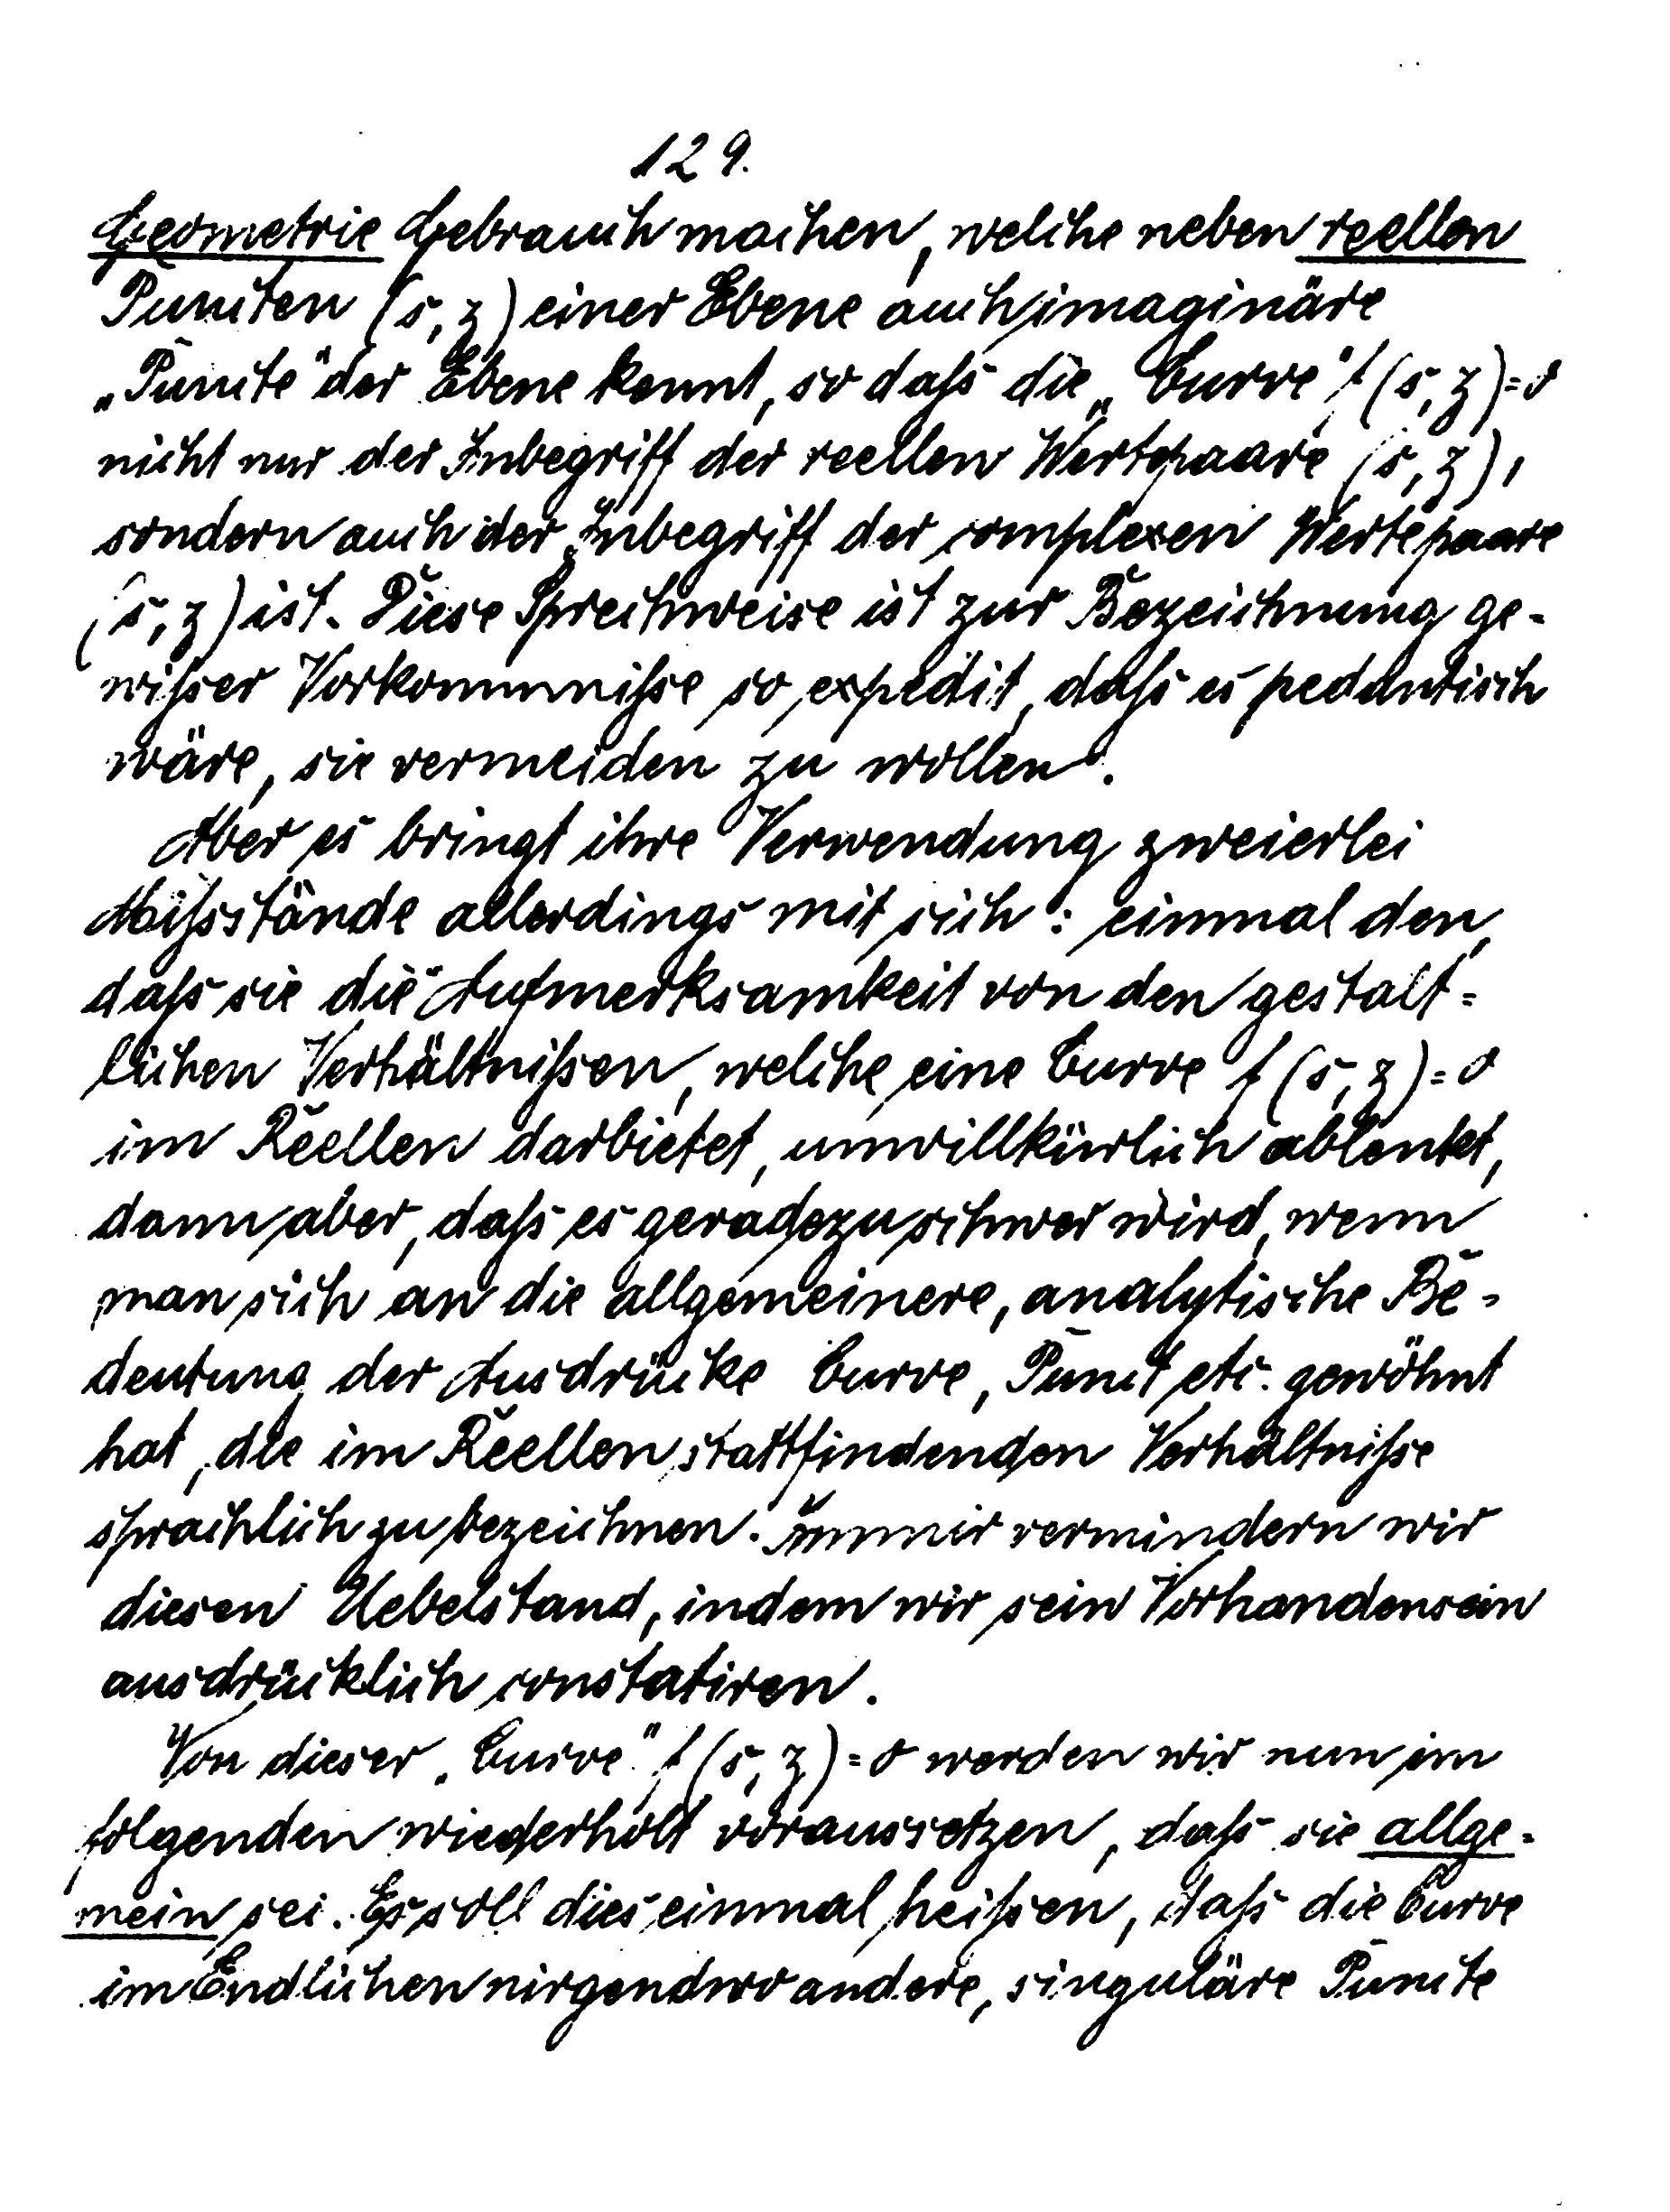 129.
Geometrie Gebrauch machen, welche neben reellen
Puncten (s, z) einer Ebene auch imaginäre
„Puncte" der Ebene kennt, so daſs die „Curve" f(s, z)=0
nicht nur der Inbegriff der reellen Wertepaare (s, z),
sondern auch der Inbegriff der complexen Wertepaare
(s, z) ist. Diese Sprechweise ist zur Bezeichnung ge-
wiſser Vorkommniſse so expedit, daſs es pedantisch
wäre, sie vermeiden zu wollen.
Aber es bringt ihre Verwendung zweierlei
Miſsstände allerdings mit sich: einmal den,
daſs sie die Aufmerksamkeit von den gestalt=
lichen Verhältniſsen, welche eine Curve f(s, z)=0
im Reellen darbietet, unwillkürlich ablenkt,
dann aber, daſs es geradezu schwer wird, wenn
man sich an die allgemeinere, analytische Be-
deutung der Ausdrücke Curve, Punct etc. gewöhnt
hat, die im Reellen stattfindenden Verhältniſse
sprachlich zu bezeichnen. Immer vermindern wir
diesen Uebelstand, indem wir sein Vorhandensein
ausdrücklich constatiren.
Von dieser „Curve" f(s, z)=0 werden wir nun im
folgenden wiederholt voraussetzen, daſs sie allge-
mein sei. Es soll dies einmal heiſsen, daſs die Curve
im Endlichen nirgendwo andere, singuläre Puncte